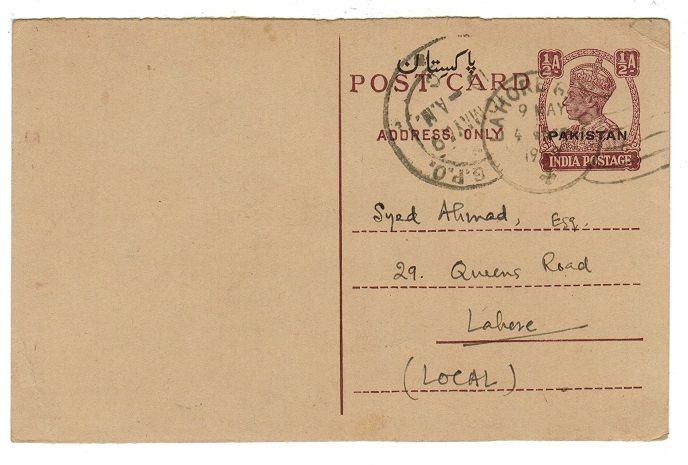 پاکستان
POST CARD
ADDRESS ONLY
½A ½A
PAKISTAN
INDIA POSTAGE
LAHORE G.
9 MAY
4
19
A.N.
MAY
Syed Ahmad, Esq.
29. Queens Road
Lahore
(LOCAL)